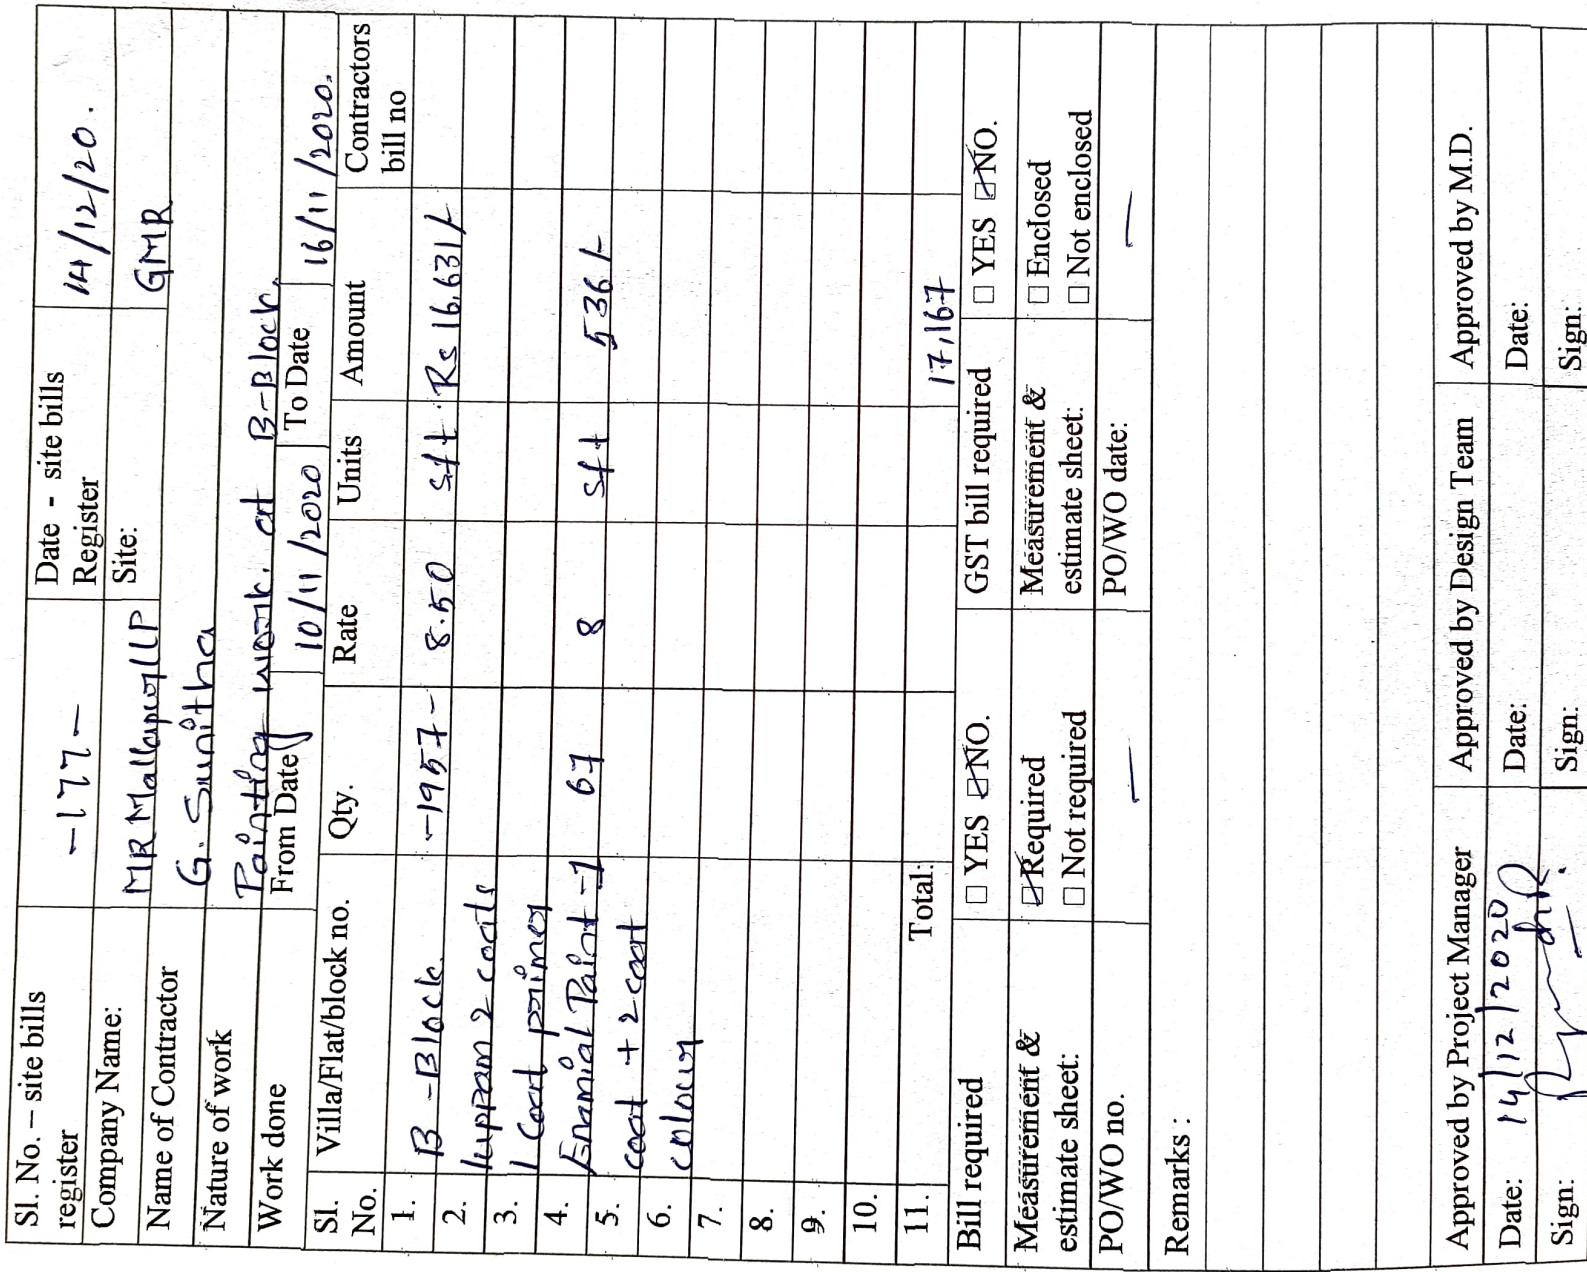 Sl. No. – site bills register -177- Date - site bills Register 14/12/20.
Company Name: MR Mallapur LLP Site: GMR
Name of Contractor G. Sunitha
Nature of work Painting work. at B-Block.
Work done From Date 10/11/2020 To Date 16/11/2020.
Sl. No. Villa/Flat/block no. Qty. Rate Units Amount Contractors bill no
1. B-Block. -1957- 8.50 sft Rs 16,631/-
2. luppam 2 coats
3. 1 Coat primer
4. Enamial Paint -1 67 8 sft 536/-
5. coat + 2 coat
6. colour
7.
8.
9.
10.
11. Total: 17,167
Bill required □ YES ☑ NO. GST bill required □ YES ☑ NO.
Measurement & estimate sheet: ☑ Required □ Not required Measurement & estimate sheet: □ Enclosed □ Not enclosed
PO/WO no. — PO/WO date: —
Remarks :
Approved by Project Manager Approved by Design Team Approved by M.D.
Date: 14/12/2020 Date: Date:
Sign: Sign: Sign: